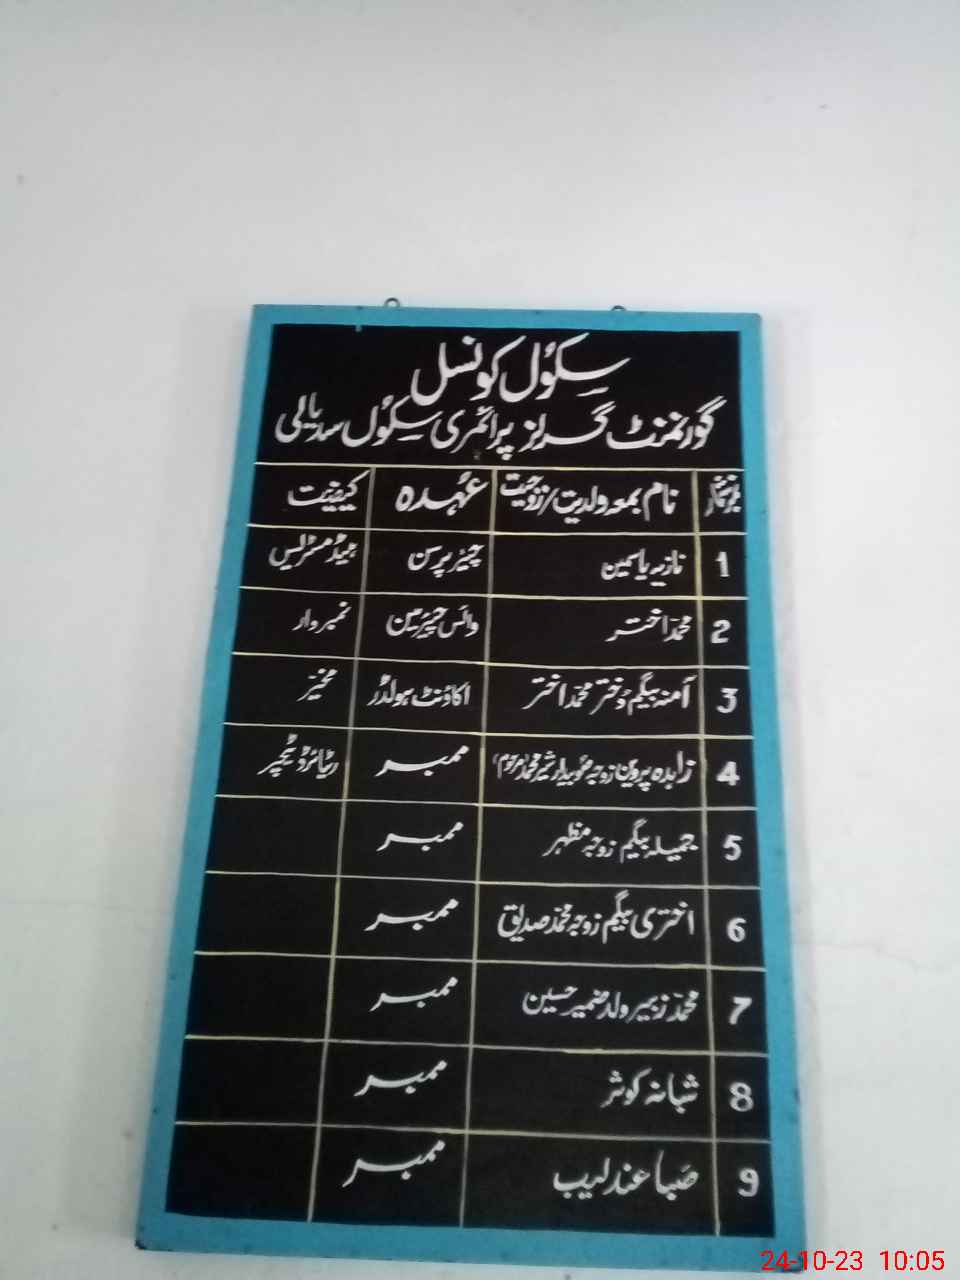 سکول کونسل
گورنمنٹ گرلز پرائمری سکول سدیالی
نمبر شمار نام بمعہ ولدیت/زوجیت عہدہ کیفیت
1 نازیہ یاسمین چیئر پرسن ہیڈ مسٹریس
2 محمد اختر وائس چیئرمین نمبر دار
3 آمنہ بیگم دختر محمد اختر اکاؤنٹ ہولڈر مخیر
4 زاہدہ پروین زوجہ صوبیدار شیر محمد (مرحوم) ممبر ریٹائرڈ ٹیچر
5 جمیلہ بیگم زوجہ مظہر ممبر
6 اختری بیگم زوجہ محمد صدیق ممبر
7 محمد زبیر ولد ضمیر حسین ممبر
8 شبانہ کوثر ممبر
9 صبا عندلیب ممبر
24-10-23 10:05